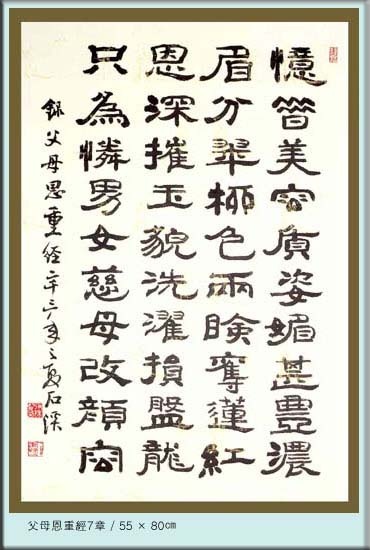 憶昔美容質姿媚甚豊濃
眉分翠柳色兩瞼奪蓮紅
恩深摧玉貌洗濯損盤龍
只為憐男女慈母改顔容
錄父母恩重經二千三年之夏石溪
父母恩重經7章 / 55 × 80㎝